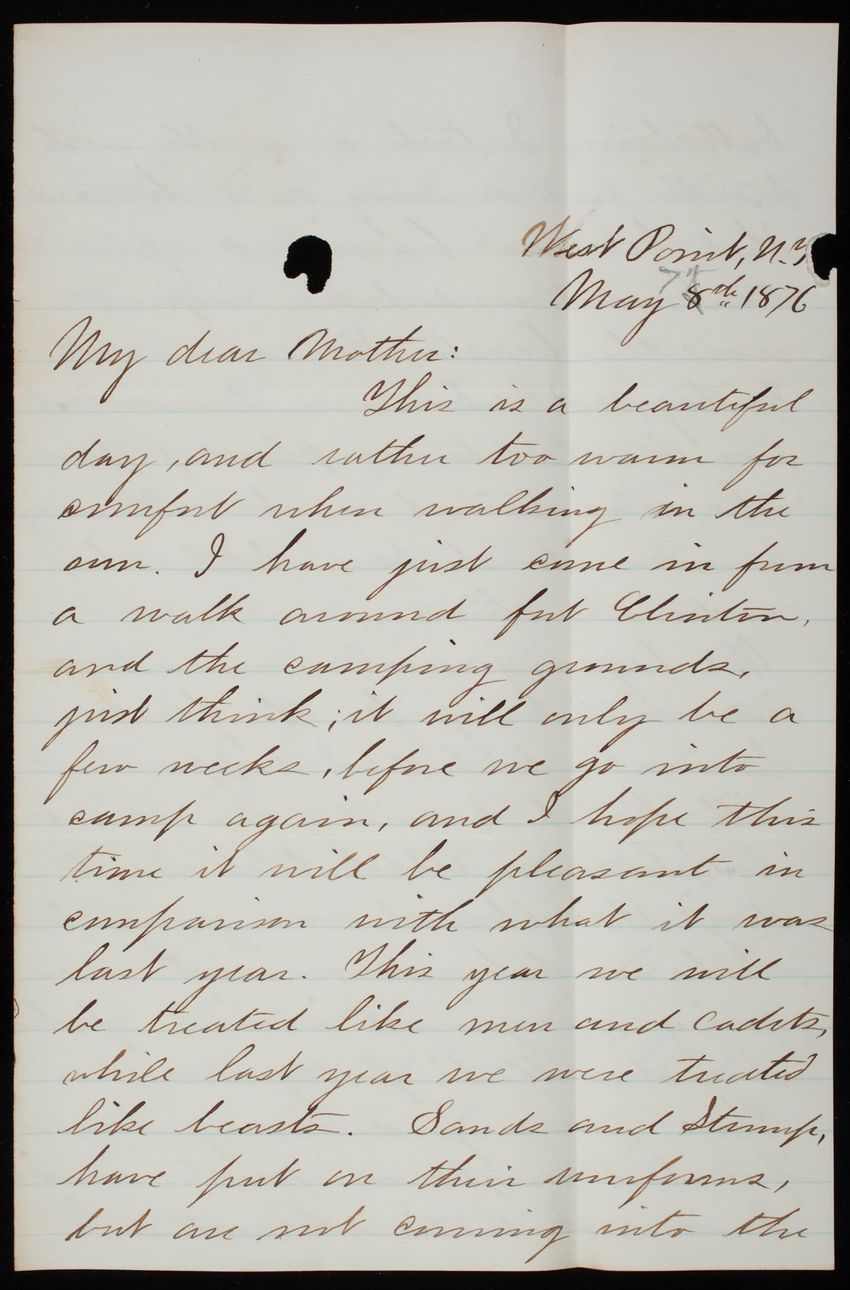 West Point, N.Y
May 8th 1876
7th
My dear Mother:
This is a beautiful
day, and rather too warm for
comfort when walking in the
sun. I have just come in from
a walk around fort Clinton,
and the camping grounds,
just think; it will only be a
few weeks, before we go into
camp again, and I hope this
time it will be pleasant in
comparison with what it was
last year. This year we will
be treated like men and cadets,
while last year we were treated
like beasts. Sands and Stump,
have put on their uniforms,
but are not coming into the